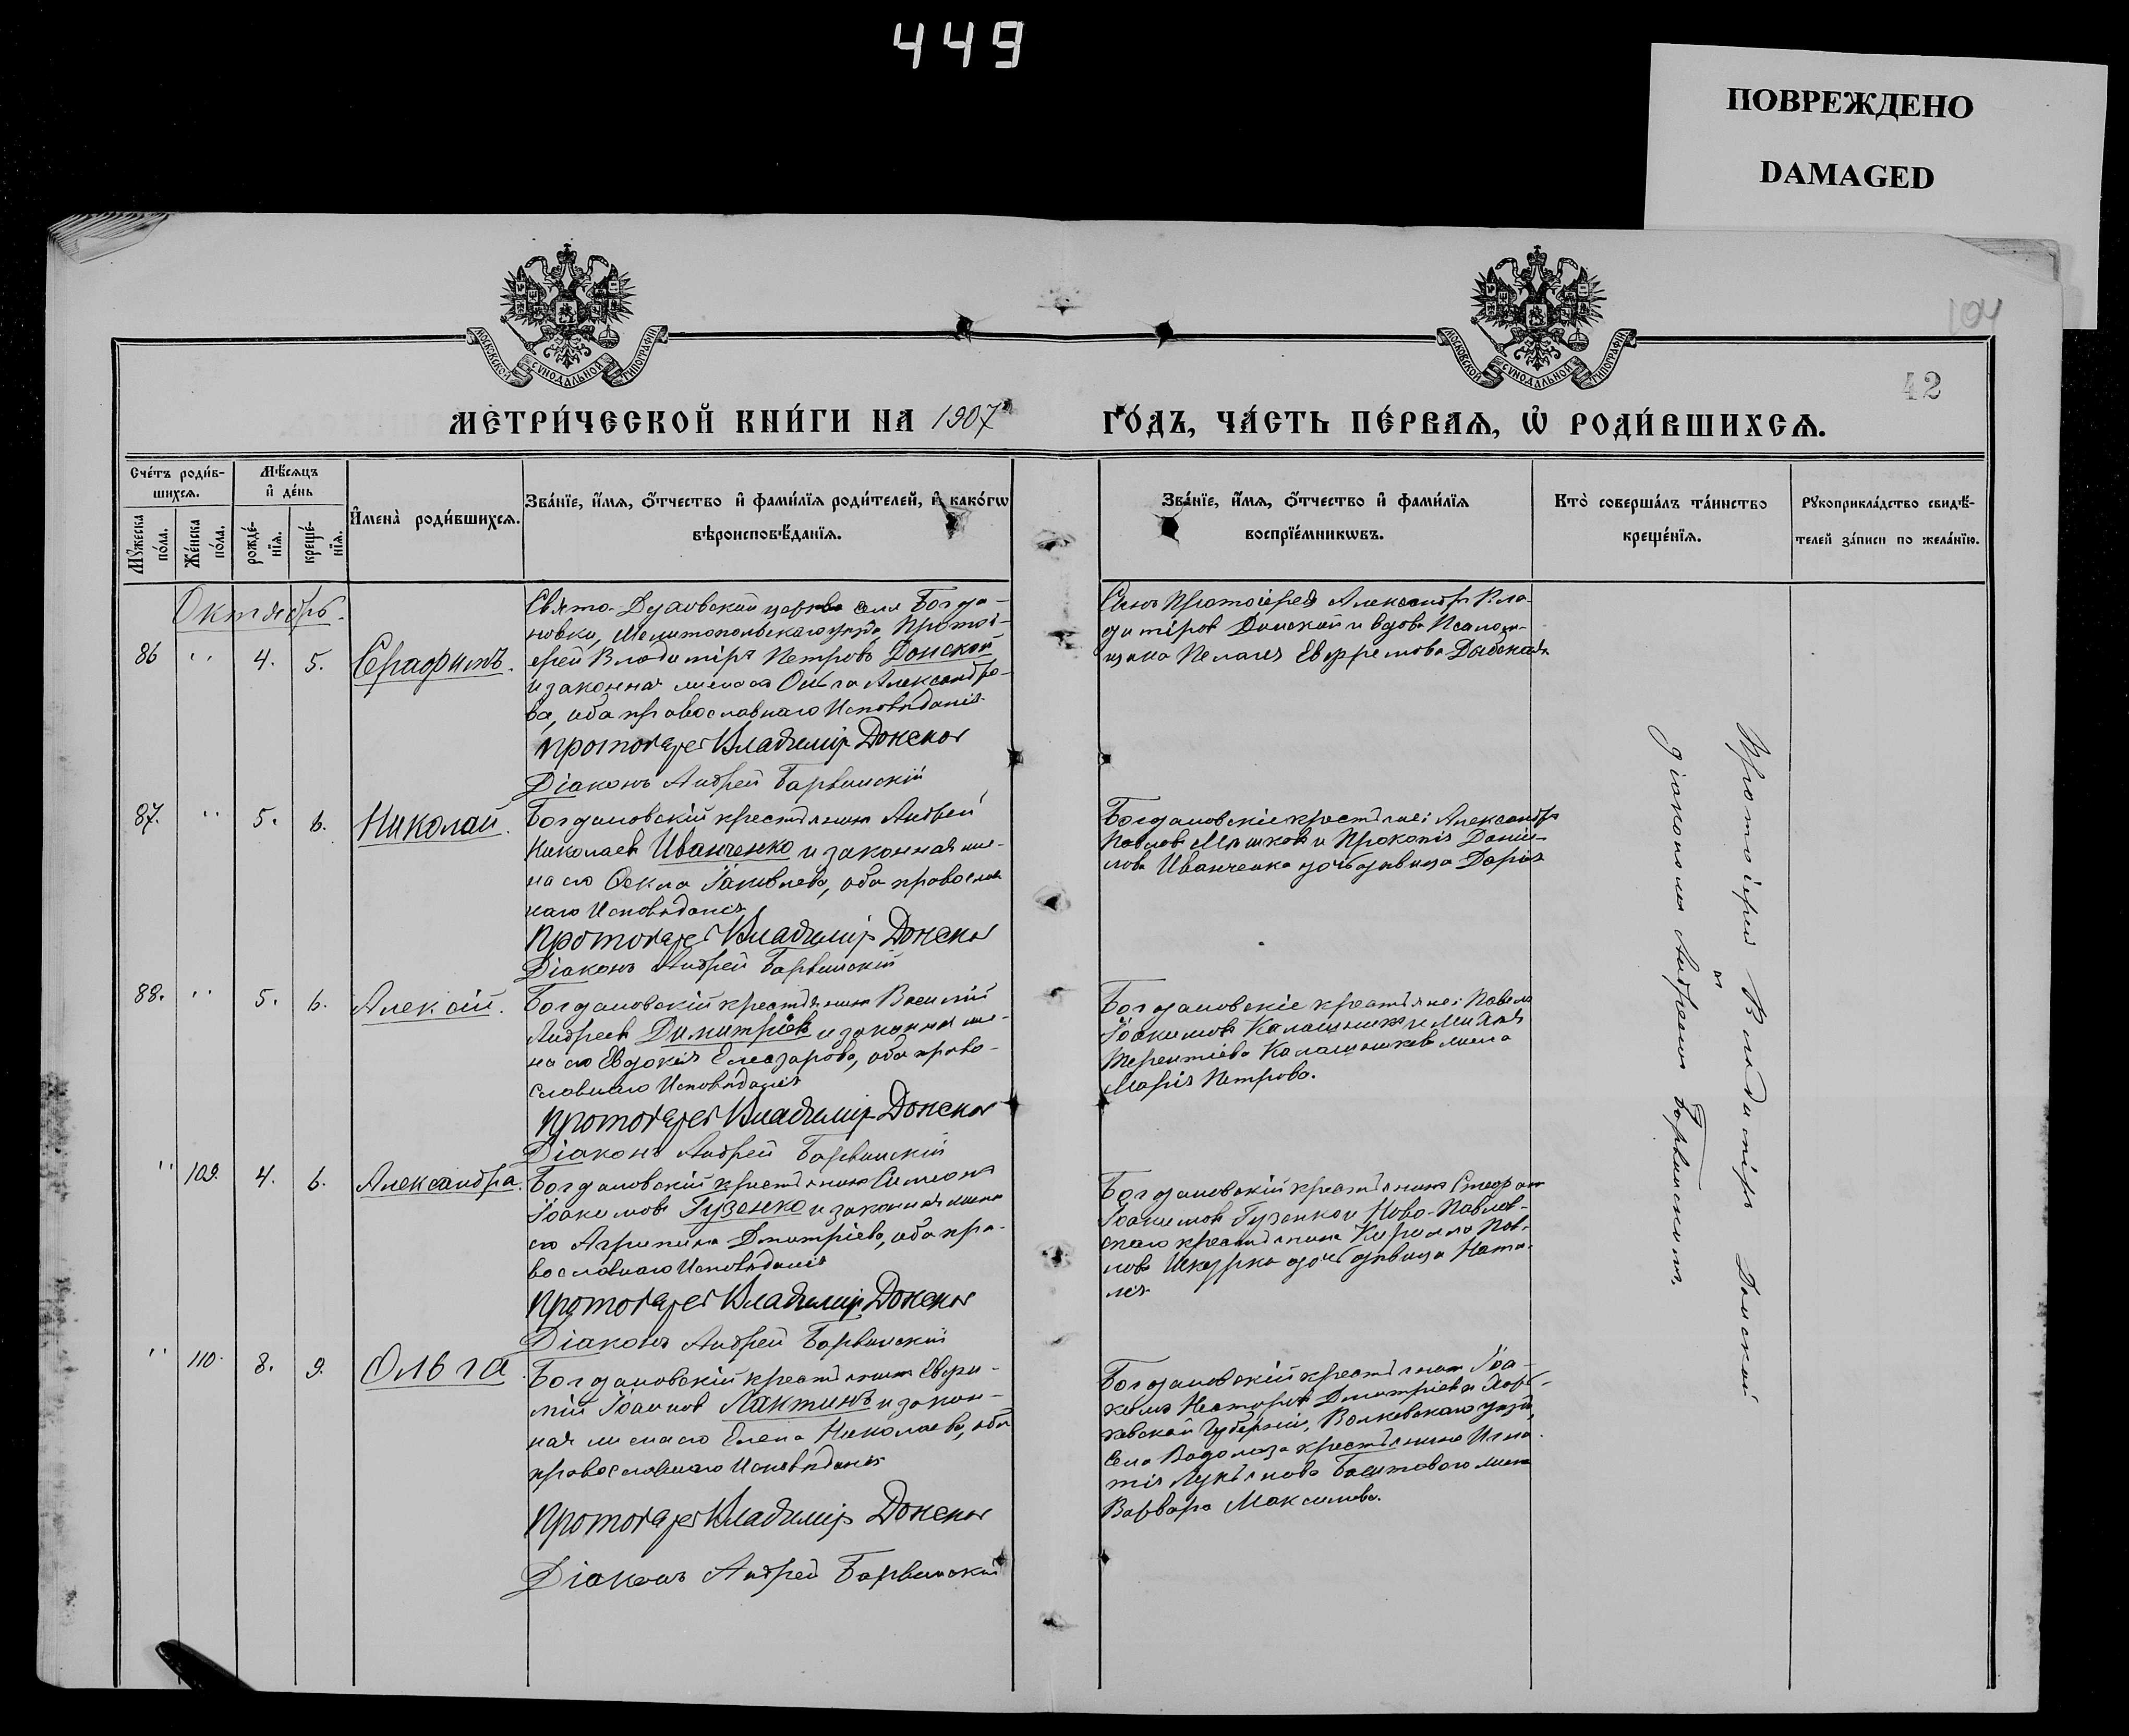 449
ПОВРЕЖДЕНО
DAMAGED
104
42
МОСКОВСКОЙ СУНОДАЛЬНОЙ ТИПОГРАФІИ
МОСКОВСКОЙ СУНОДАЛЬНОЙ ТИПОГРАФІИ
МЕТРИ́ЧЕСКОЙ КНИ́ГИ НА 1907
ГО́ДЪ, ЧА́СТЬ ПЕ́РВАѦ, Ѽ РОДИ́ВШИХСѦ.
Сче́тъ роди́в-
шихсѧ.
Мѣ́сѧцъ
и҆ де́нь
Мꙋ́жеска
по́ла.
Же́нска
по́ла.
рожде́-
нїѧ.
креще́-
нїѧ.
И҆мена̀ роди́вшихсѧ.
Зва́нїе, и҆́мѧ, ѻ҆́тчество и҆ фами́лїѧ роди́телей, и҆ како́гѡ
вѣроисповѣ́данїѧ.
Зва́нїе, и҆́мѧ, ѻ҆́тчество и҆ фами́лїѧ
воспрїе́мникѡвъ.
Кто̀ соверша́лъ та́инство
креще́нїѧ.
Рꙋкоприкла́дство свидѣ́-
телей за́писи по жела́нїю.
Октябрь.
86 " 4. 5. Серафимъ.
Свято-Духовской церкви села Богда-
новки, Мелитопольскаго уѣзда Протоі-
ерей Владиміръ Петровъ Донской
и законная жена его Ольга Александро-
ва, оба православнаго Исповѣданія
Протоіерей Владиміръ Донской
Діаконъ Андрей Барвинскій
Сынъ Протоіерея Александръ Вла-
диміровъ Донской и вдова Псалом-
щика Пелагея Евфремова
87. " 5. 6. Николай.
Богдановскій крестьянинъ Андрей
Николаевъ Иванченко и законная же-
на его Ѳекла Іаковлева, оба православ
наго Исповѣданія
Протоіерей Владиміръ Донской
Діаконъ Андрей Барвинскій
Богдановскіе крестьяне: Александръ
Павловъ и Прокопія Данiи-
лова Иванченка дочь дѣвица Дарія
88. " 5. 6. Алексій.
Богдановскій крестьянинъ Василій
Андреевъ Димитріевъ и законная же-
на его Евдокія Елеазарова, оба право-
славнаго Исповѣданія
Протоіерей Владиміръ Донской
Діаконъ Андрей Барвинскій
Богдановскіе крестьяне: Павелъ
Іоакимовъ Калашникъ и
Терентіева Калашникова жена
Марія Петрова.
" 109. 4. 6. Александра.
Богдановскій крестьянинъ Симеонъ
Іоакимовъ Гузенко и законная жена
его Агрипина Дмитріева, оба пра-
вославнаго Исповѣданія
Протоіерей Владиміръ Донской
Діаконъ Андрей Барвинскій
Богдановскій крестьянинъ Стефанъ
Іоакимовъ Гузенко и Ново-Павлов-
скаго крестьянина Кирилла Пав-
лова дочь дѣвица Ната-
лія
" 110. 8. 9. Ольга.
Богдановскій крестьянинъ Евфи-
мій Іоанновъ Лактинъ и закон-
ная жена его Елена Николаева, оба
православнаго Исповѣданія
Протоіерей Владиміръ Донской
Діаконъ Андрей Барвинскій
Богдановскій крестьянинъ Іоа-
кимъ Дмитріевъ и Харь-
ковской Губерніи, Волковскаго уѣзда,
села Водолага крестьянина Игна-
тія Лукьянова жена
Варвара Максимова.
Протоіерей Владиміръ Донской
съ
діакономъ Андреемъ Барвинскимъ.